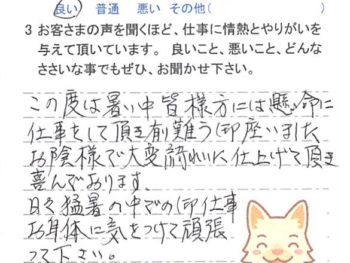 良い 普通 悪い その他(
3 お客さまの声を聞くほど、仕事に情熱とやりがいを
与えて頂いています。 良いこと、悪いこと、どんな
ささいな事でもぜひ、お聞かせ下さい。
この度は暑い中皆様方には懸命に
仕事をして頂き有難う御座いました
お陰様で大変綺れいに仕上げて頂き
喜んであります。
日々猛暑の中での御仕事
お身体に気をつけて頑張
って下さい。